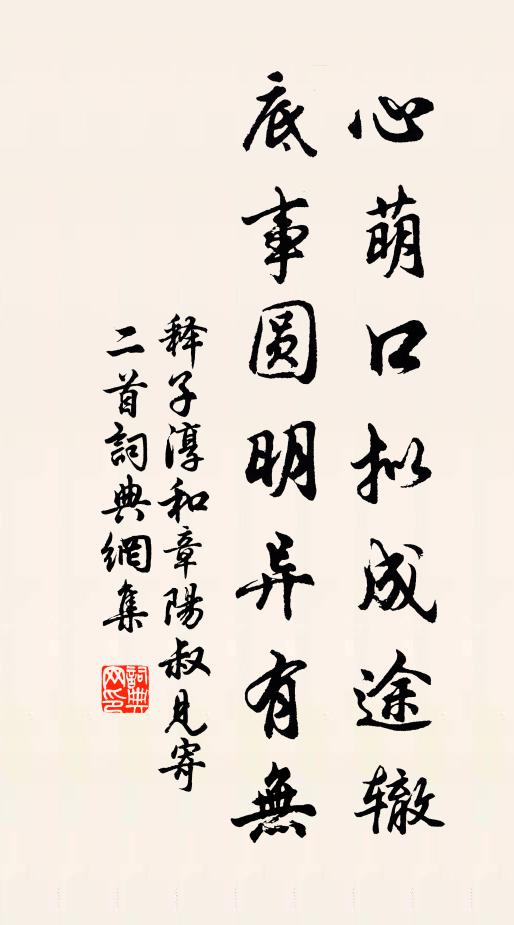 心萌口拟成途辙
底事圆明异有無
释子淳和章陽叔見寄
二首詞典網集
詞典网印